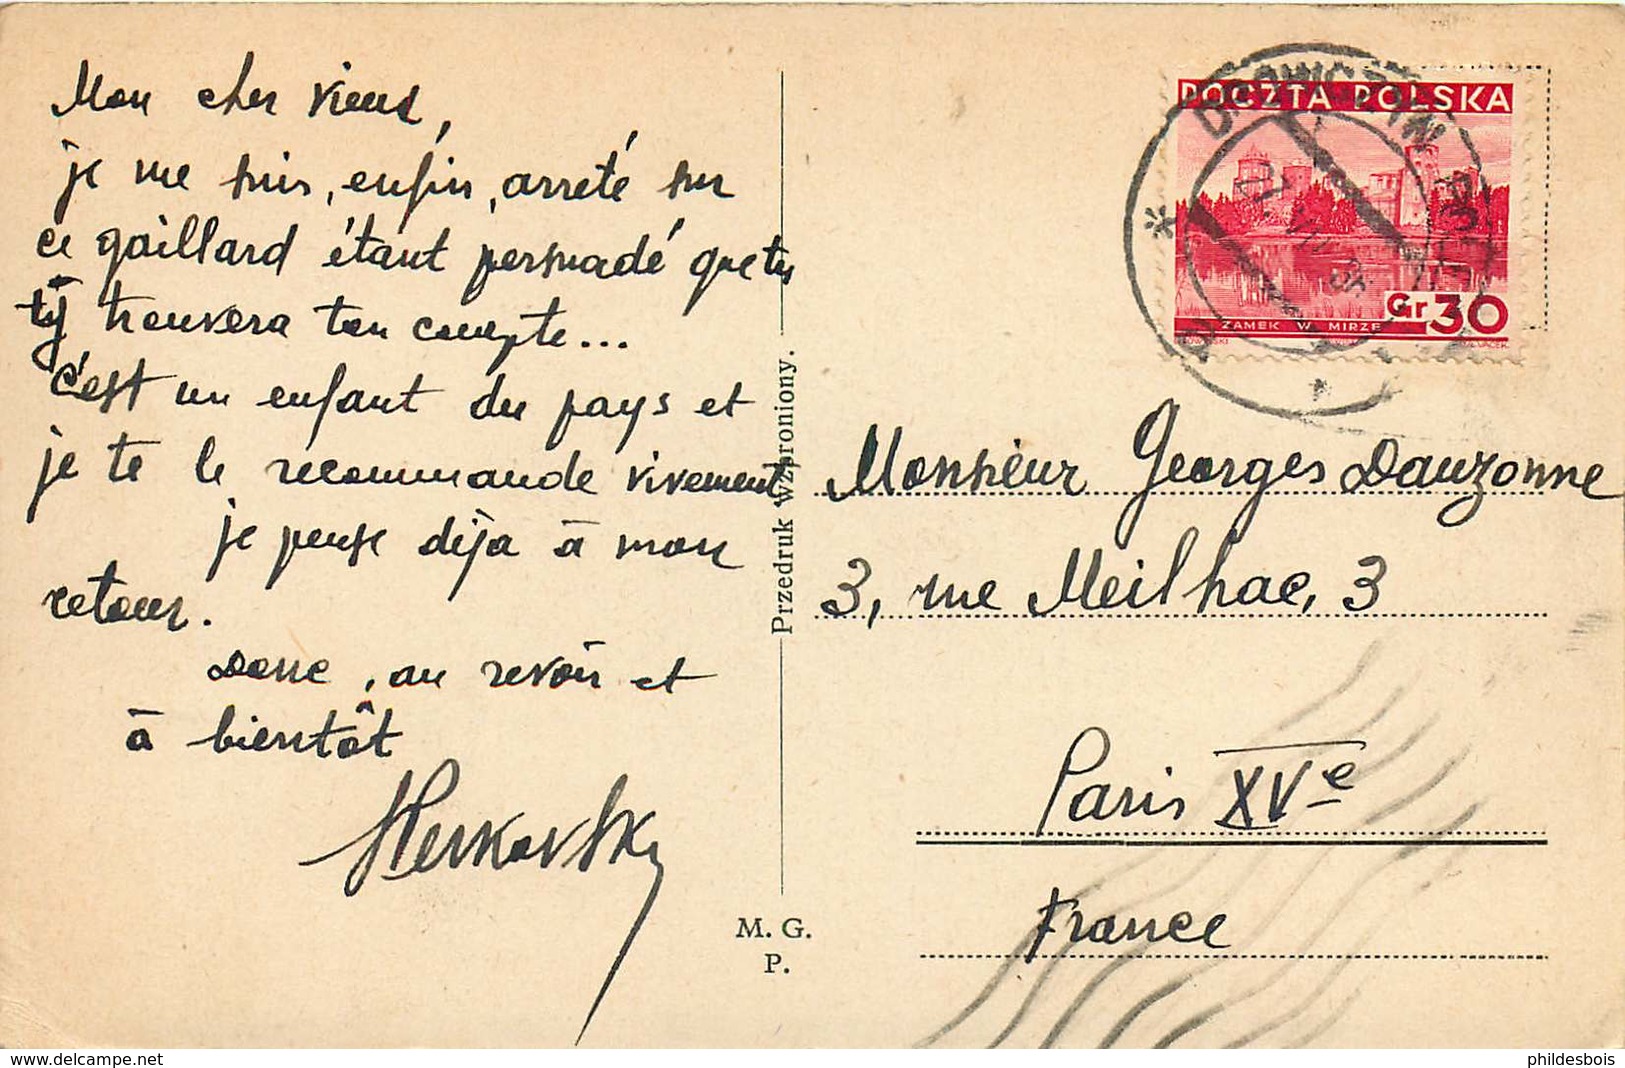 Mon cher vieux,
je me suis, enfin, arreté sur
ce gaillard étant persuadé que tu
t'y trouvera ton compte...
c'est un enfant du pays et
je te le recommande vivement
je pense déja à mon
retour.
Donc, au revoir et
à bientôt
Przedruk wzbroniony.
M. G.
P.
POCZTA POLSKA
Gr. 30
ZAMEK W MIRZE
Monsieur Georges Dauzonne
3, rue Meilhac, 3
Paris XVe
France
phildesbois
www.delcampe.net